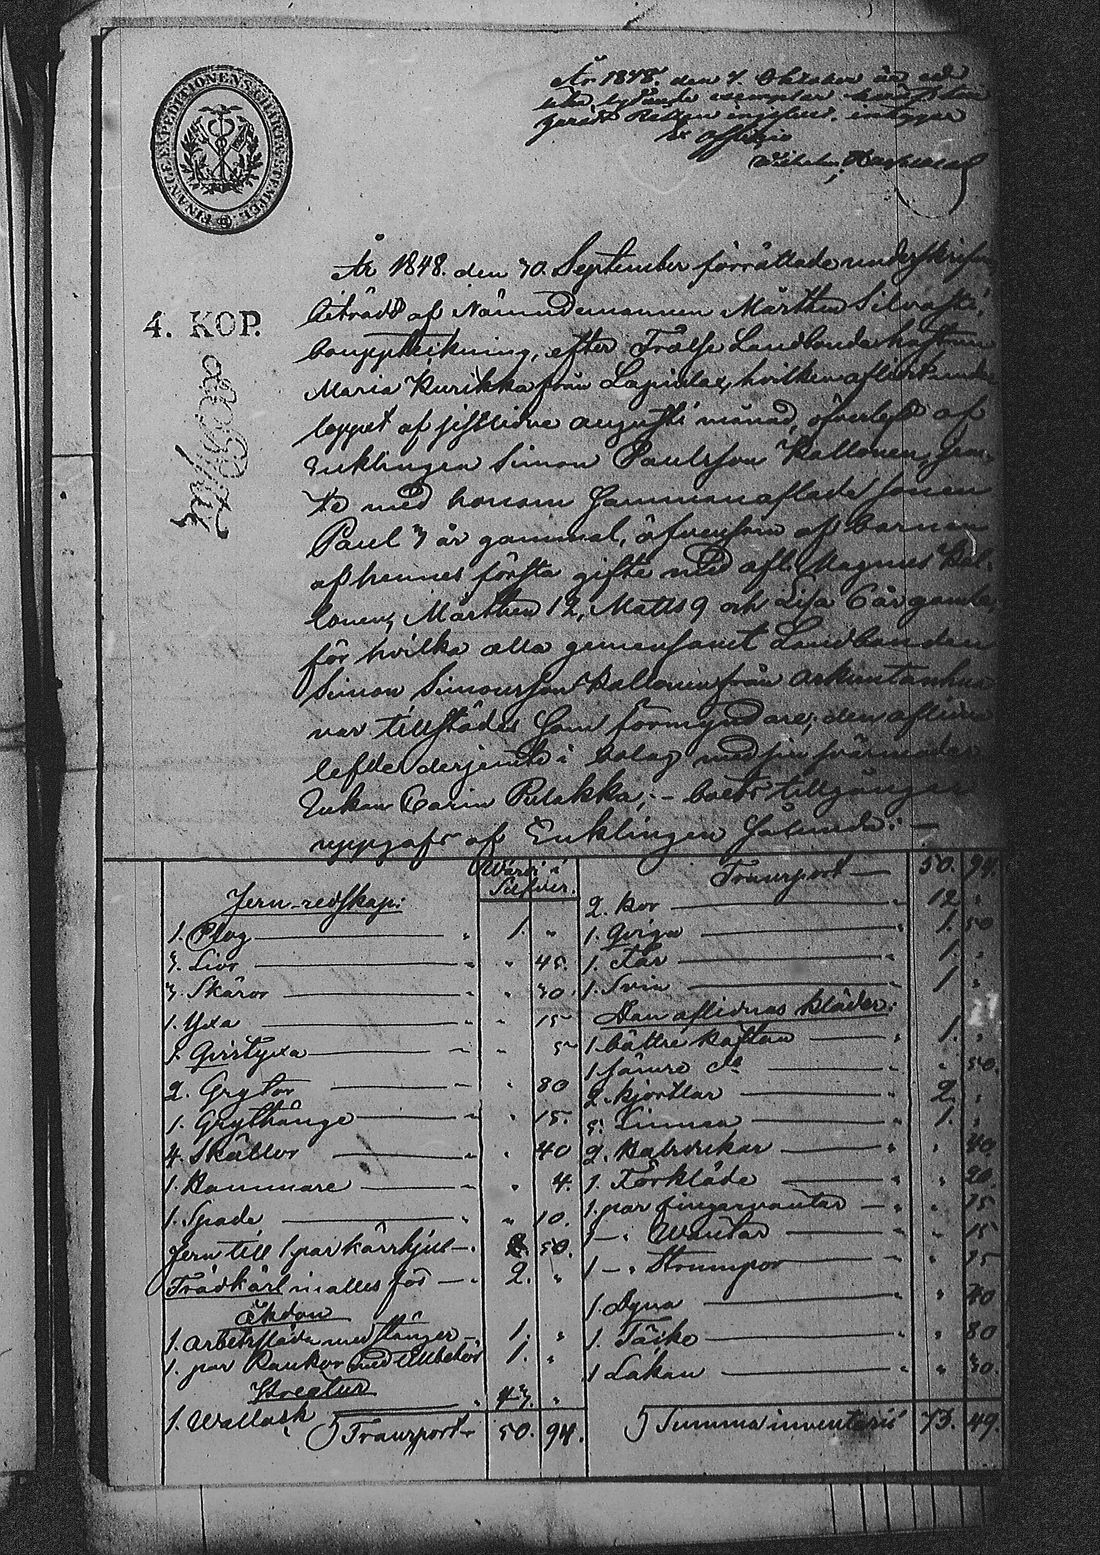 År 1848. den 7 Oktober
exemplar
Ex officio
FINANCE EXPEDITIONENS CHARTÆ STEMPEL
4. KOP.
År 1848. den 30. September förrättade undertecknad
biträdd af Nämndemannen Mårthen Silvasti,
bouppteckning, efter Frälse Landbondehustrun
Maria Kurikka från Lapinlax, hvilken aflidit under
loppet af sistlidne augusti månad, öfverlefd af
Enklingen Simon Paulsson Kallonen,
te med honom sammanaflade sonen
Paul 3 år gammal, äfvensom af barnen
af hennes första gifte med afl. Magnus Kal-
lonen, Mårthen 12, Matts 9 och Lisa 6 år gamla,
för hvilka alla gemensamt Landbonden
Simon Simonsson Kallonen från
var tillstädes som förmyndare; den aflidna
lefde derjemte i bolag med sin svärmoder
Enkan Carin Pulakka; – boets tillgångar
uppgafs af Enklingen sålunda: –
Wärde i
Silfver.
Jern-redskap:
1. Plog — " 1. "
3. Liar — " " 45.
3. Skäror — " " 30.
1. Yxa — " " 15
1. — " " 5
2. Grytor — " " 80
1. Grythänge — " " 15.
4. — " " 40
1. Hammare — " " 4.
1. Spade — " " 10.
Jern till 1 par kärrhjul — " 50.
Trädkärl in alles för — " 2. "
Åkdon
1. arbetssläde med stänger — " 1. "
1. par Rankor med tillbehör 1. "
Kreatur
1. Wallack — " 43. "
Transport 50. 94.
Transport — 50. 94.
2. Kor — " 12. "
1. Qviga — " 1. 50
1. Får — " 1. "
1. Svin — " 1. "
Den aflidnas kläder:
1. bättre kaftan — " 1. "
1. sämre do — " " 50.
2. Kjortlar — " 2. "
5. Linnen — " 1. "
2. — " " 40.
1. Förkläde — " " 20.
1. par fingervantar — " " 15
1 – " Wantar — " " 15
1 – " Strumpor — " " 15
1. Dyna — " " 40
1. Täcke — " " 80
1 Lakan — " " 30.
Summa inventarii 73. 49.